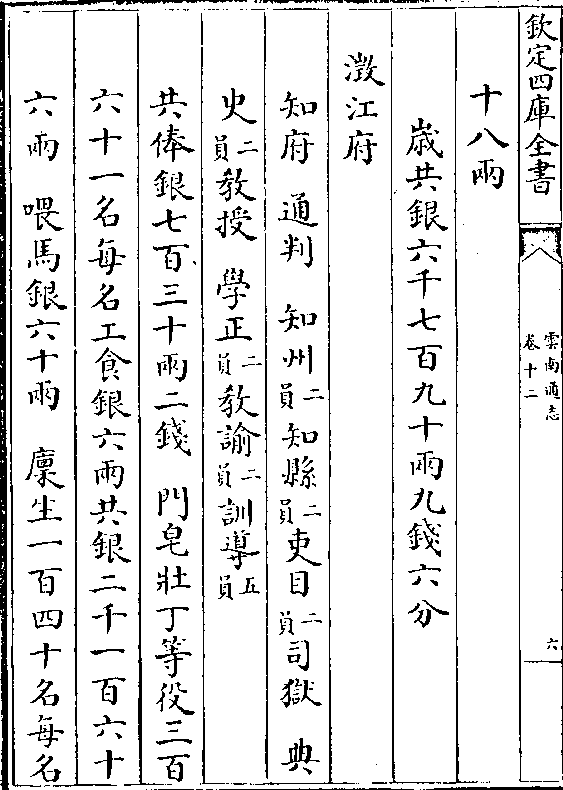 欽定四庫全書
雲南通志
卷十二
六
十八兩
歲共銀六千七百九十兩九錢六分
澂江府
知府 通判 知州二員知縣二員吏目二員司獄 典
史二員教授 學正二員教諭二員訓導五員
共俸銀七百三十兩二錢 門皂壯丁等役三百
六十一名每名工食銀六兩共銀二千一百六十
六兩 喂馬銀六十兩 廩生一百四十名每名